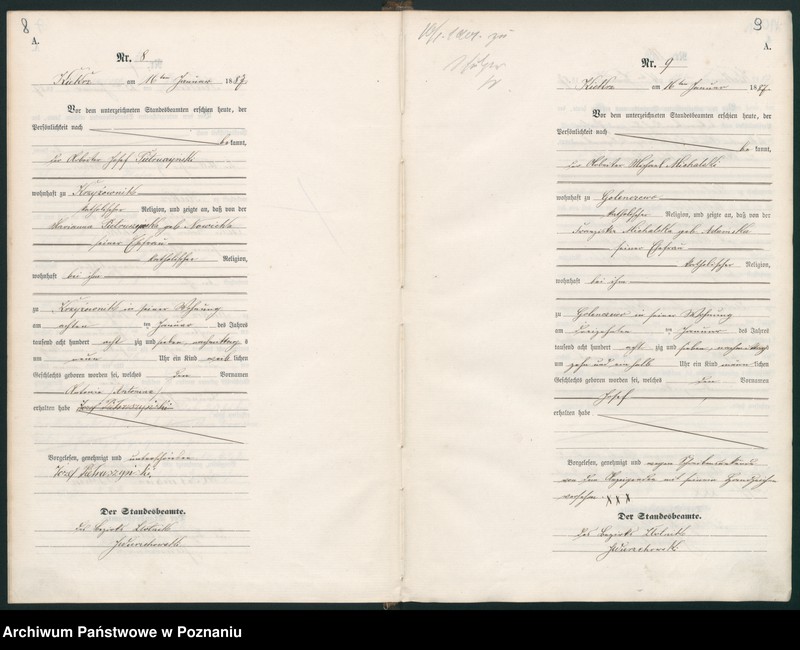 8
A.
Nr. 8
Kiekrz am 16ten Januar 1887
Vor dem unterzeichneten Standesbeamten erschien heute, der
Persönlichkeit nach
bekannt,
der Arbeiter Josef
wohnhaft zu
katholischer Religion, und zeigte an, daß von der
Marianna geb. Nowicka
seiner Ehefrau
katholischer Religion,
wohnhaft bei ihm
zu in seiner Wohnung
am achten ten Januar des Jahres
tausend acht hundert acht zig und sieben, nachmittag s
um neun Uhr ein Kind weib lichen
Geschlechts geboren worden sei, welches den Vornamen
Antonie
erhalten habe
Vorgelesen, genehmigt und unterschrieben
Josef
Der Standesbeamte.
des Bezirks Zlotnik
9
A.
Nr. 9
Kiekrz am 16ten Januar 1887
Vor dem unterzeichneten Standesbeamten erschien heute, der
Persönlichkeit nach
bekannt,
der Arbeiter Michael Michalski
wohnhaft zu Golenczewo
katholischer Religion, und zeigte an, daß von der
Franziska Michalska geb. Adamska
seiner Ehefrau
katholischer Religion,
wohnhaft bei ihm
zu Golenczewo in seiner Wohnung
am dreizehnten ten Januar des Jahres
tausend acht hundert acht zig und sieben, nachmittags
um zehn und ein halb Uhr ein Kind männ lichen
Geschlechts geboren worden sei, welches den Vornamen
Josef
erhalten habe
Vorgelesen, genehmigt und wegen Schreibensunkunde
von dem Anzeigenden mit seinem Handzeichen
versehen. XXX
Der Standesbeamte.
des Bezirks Zlotnik
Archiwum Państwowe w Poznaniu